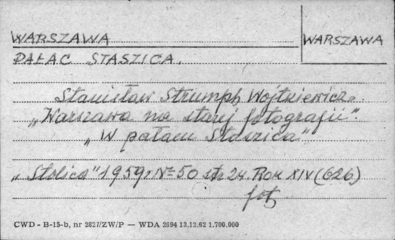 WARSZAWA
WARSZAWA
PAŁAC STASZICA.
Stanisław Strumph Wojtkiewicz.
„Warszawa na starej fotografii".
„W pałacu Staszica"
„Stolica" 1959 r № 50 str 24. Rok XIV (626)
fot.
CWD - B-15-b, nr 2827/ZW/P — WDA 2694 13.12.62 1.700.000